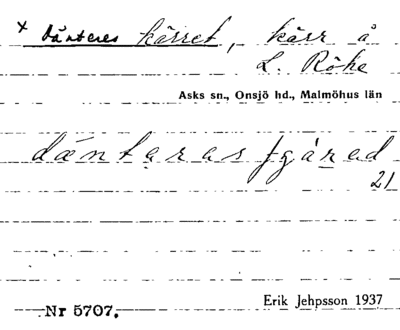 × Dänteres kärret, kärr å
L. Röke
Asks sn., Onsjö hd., Malmöhus län
däntarasfgärad
21
Erik Jehpsson 1937
Nr 5707.